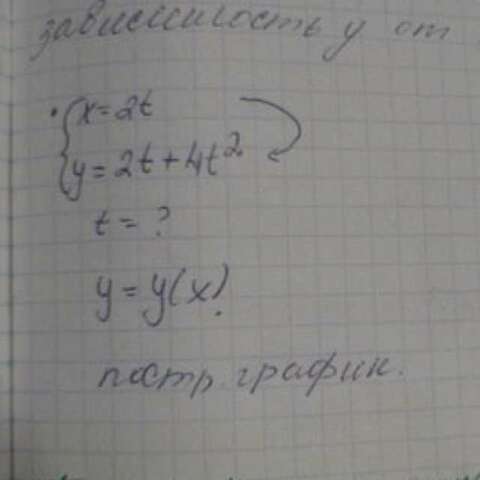 зависимость y от
x = 2t
y = 2t + 4t²
t = ?
y = y(x).
постр. график.